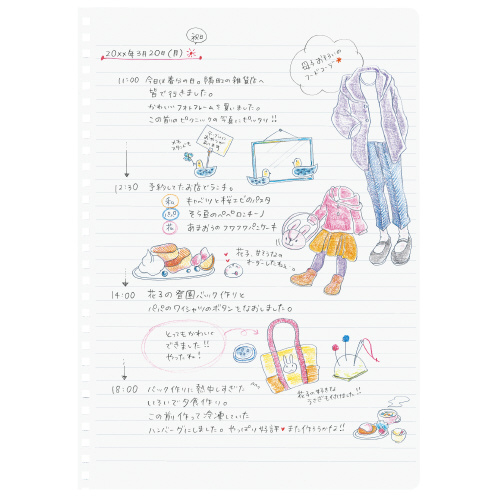 祝日
20xx年3月20日(月)
母子おそろいの
フードコーデ
11:00 今日は春分の日。隣町の雑貨店へ
皆で行きました。
かわいいフォトフレームを買いました。
この前のピクニックの写真にピッタリ!!
メモ
スタンドも
12:30 予約してたお店でランチ。
私 キャベツと桜エビのパスタ
パパ そら豆のペペロンチーノ
花 あまおうのフワフワパンケーキ
花子、甘そうなの
オーダーしたねぇ。
14:00 花子の登園バッグ作りと
パパのワイシャツのボタンをなおしました。
とってもかわいく
できました!!
やったね!
花子の好きな
うさぎも付けました!!
18:00 バッグ作りに熱中しすぎた
いそいで夕食作り。
この前作って冷凍していた
ハンバーグにしました。やっぱり好評♥また作ろうかな!!